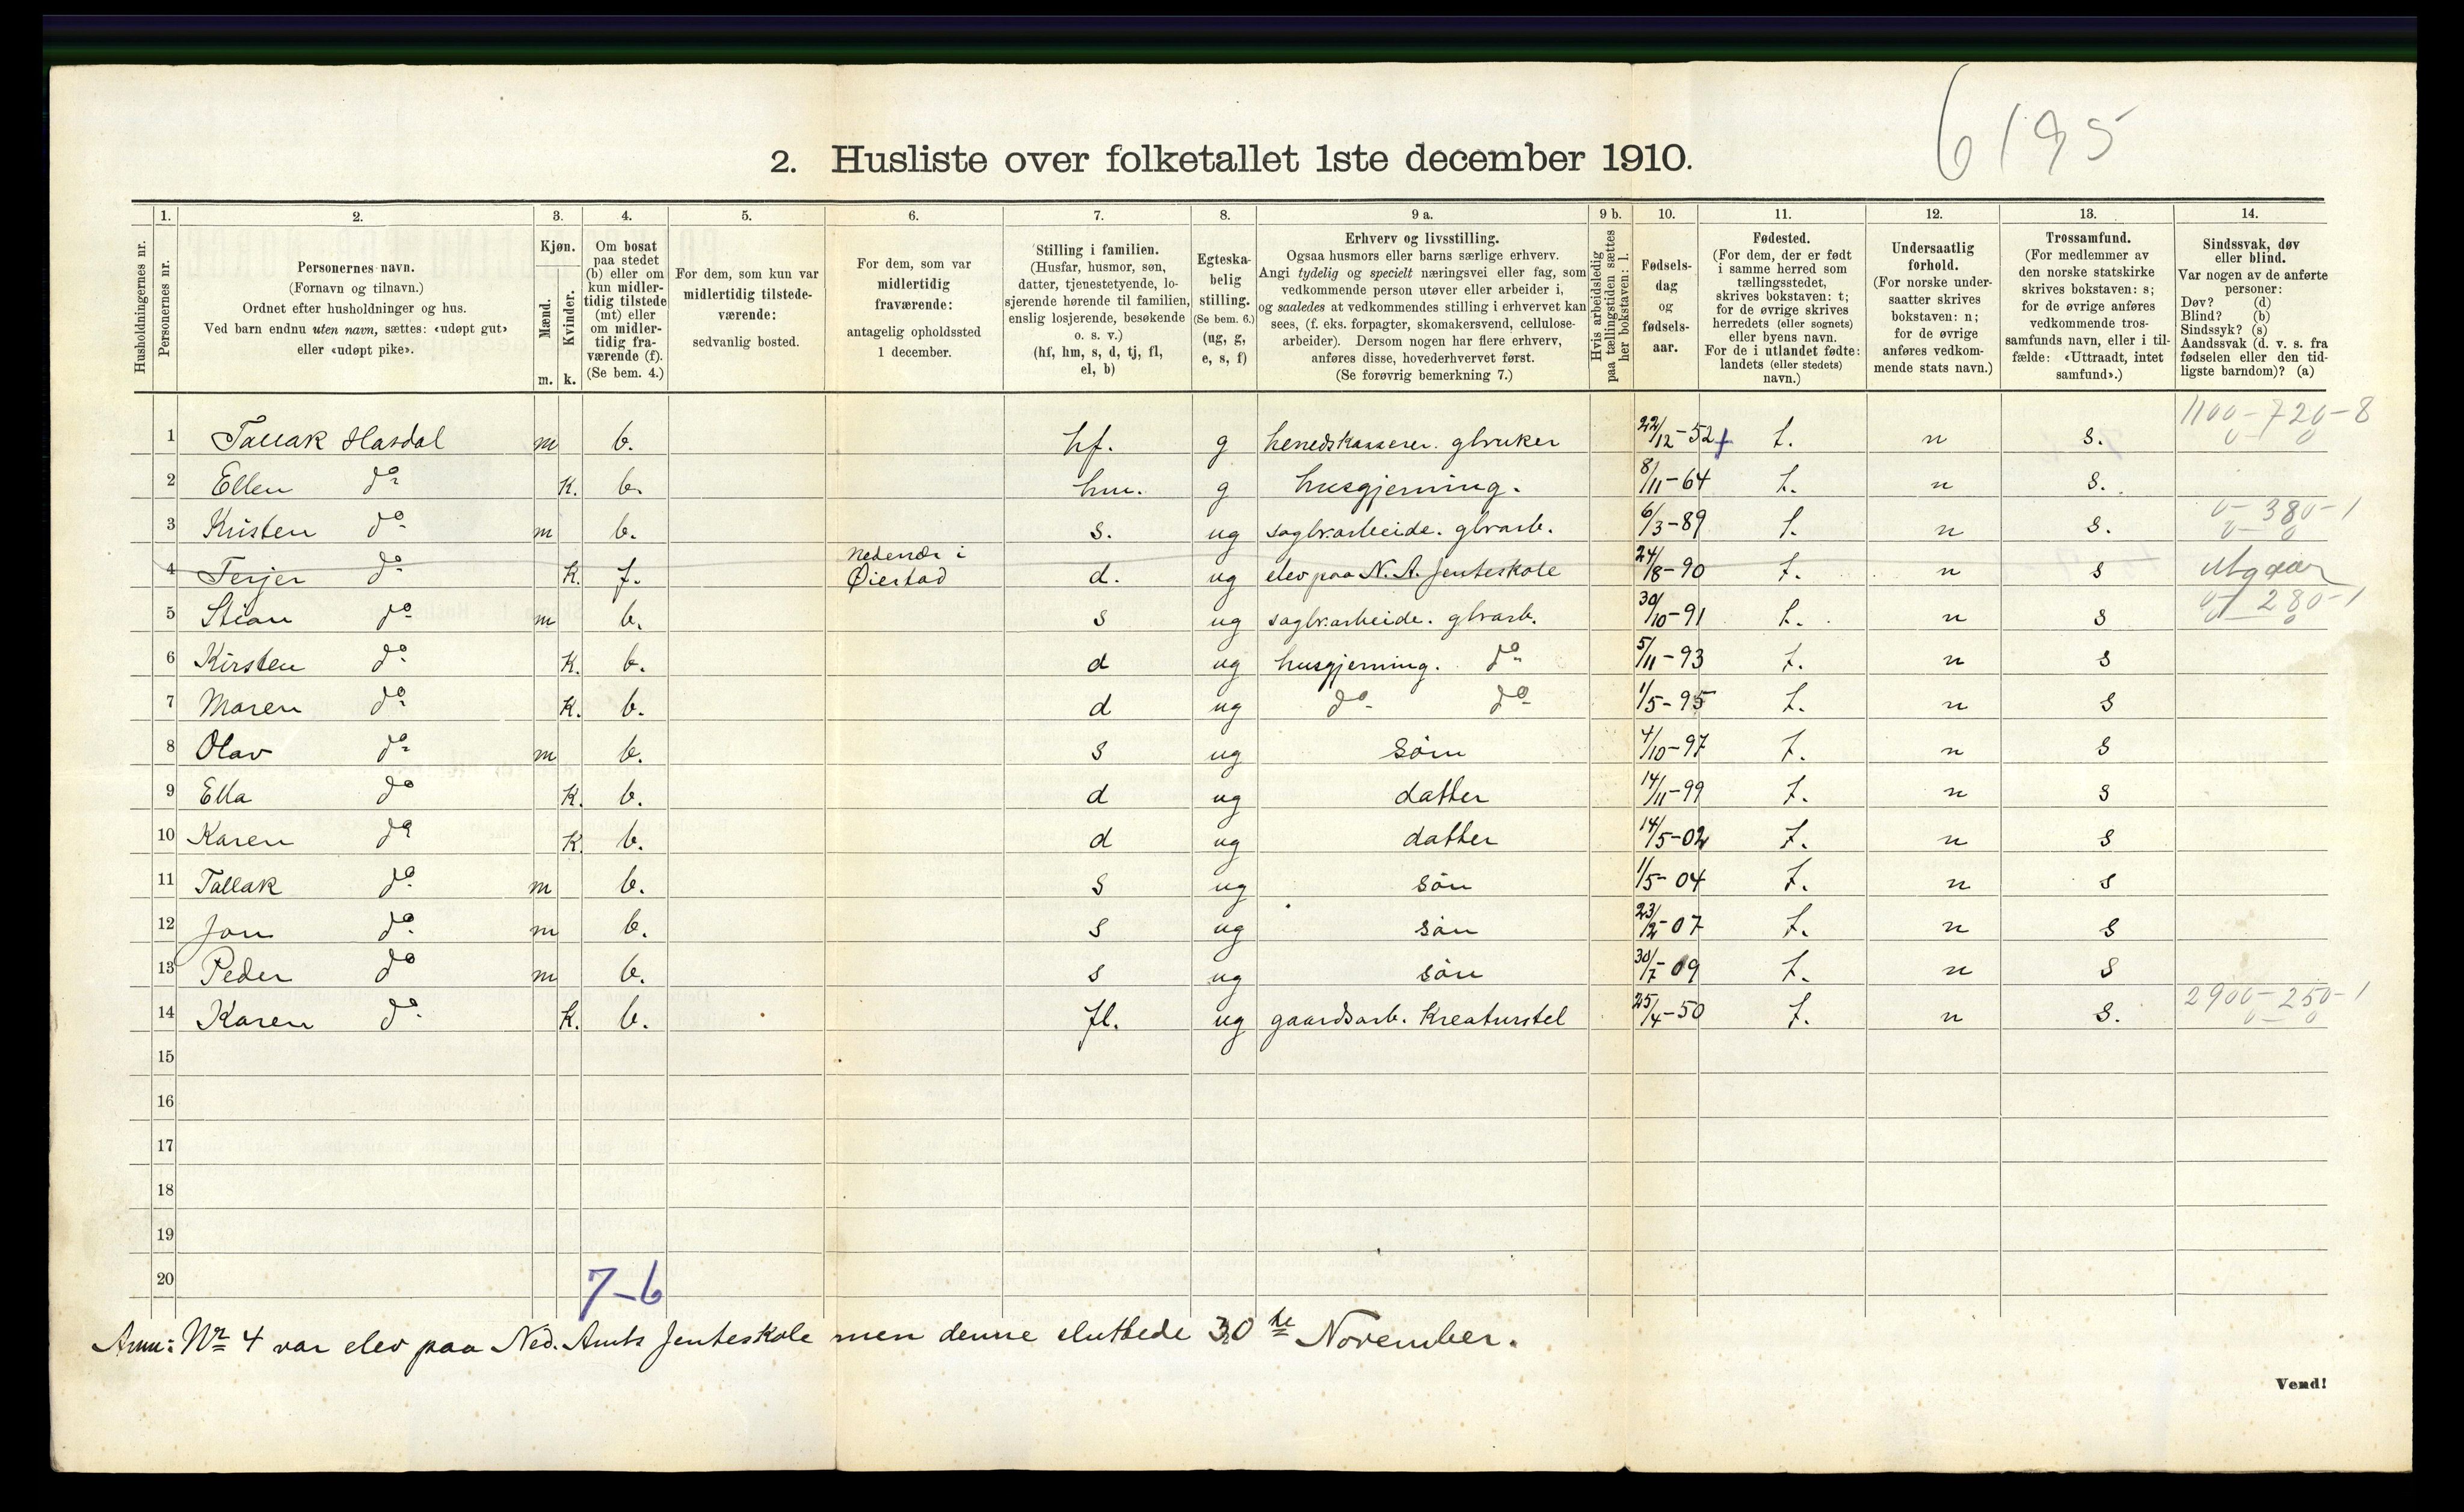 6195
2. Husliste over folketallet 1ste december 1910.
Husholdningernes nr.
1. Personernes nr.
2. Personernes navn.
(Fornavn og tilnavn.)
Ordnet efter husholdninger og hus.
Ved barn endnu uten navn, sættes: «udøpt gut»
eller «udøpt pike».
3. Kjøn.
Mænd. Kvinder.
m. k.
4. Om bosat
paa stedet
(b) eller om
kun midler-
tidig tilstede
(mt) eller
om midler-
tidig fra-
værende (f).
(Se bem. 4.)
5. For dem, som kun var
midlertidig tilstede-
værende:
sedvanlig bosted.
6. For dem, som var
midlertidig
fraværende:
antagelig opholdssted
1 december.
7. Stilling i familien.
(Husfar, husmor, søn,
datter, tjenestetyende, lo-
sjerende hørende til familien,
enslig losjerende, besøkende
o. s. v.)
(hf, hm, s, d, tj, fl,
el, b)
8. Egteska-
belig
stilling.
(Se bem. 6.)
(ug, g,
e, s, f)
9 a. Erhverv og livsstilling.
Ogsaa husmors eller barns særlige erhverv.
Angi tydelig og specielt næringsvei eller fag, som
vedkommende person utøver eller arbeider i,
og saaledes at vedkommendes stilling i erhvervet kan
sees, (f. eks. forpagter, skomakersvend, cellulose-
arbeider). Dersom nogen har flere erhverv,
anføres disse, hovederhvervet først.
(Se forøvrig bemerkning 7.)
9 b. Hvis arbeidsledig
paa tællingstiden sættes
her bokstaven: l.
10. Fødsels-
dag
og
fødsels-
aar.
11. Fødested.
(For dem, der er født
i samme herred som
tællingsstedet,
skrives bokstaven: t;
for de øvrige skrives
herredets (eller sognets)
eller byens navn.
For de i utlandet fødte:
landets (eller stedets)
navn.)
12. Undersaatlig
forhold.
(For norske under-
saatter skrives
bokstaven: n;
for de øvrige
anføres vedkom-
mende stats navn.)
13. Trossamfund.
(For medlemmer av
den norske statskirke
skrives bokstaven: s;
for de øvrige anføres
vedkommende tros-
samfunds navn, eller i til-
fælde: «Uttraadt, intet
samfund».)
14. Sindssvak, døv
eller blind.
Var nogen av de anførte
personer:
Døv? (d)
Blind? (b)
Sindssyk? (s)
Aandssvak (d. v. s. fra
fødselen eller den tid-
ligste barndom)? (a)
1100-720-8
1 Tallak Hasdal m b. hf. g herredskasserer. gbruker 22/12-52 t. n s.
2 Ellen do k. b. hm. g husgjerning. 8/11-64 t. n s.
0-380-1
3 Kristen do m b. s. ug sagbr.arbeide. gbrarb. 6/3-89 t. n s.
nedenæs i
4 Terjer do k. f. Øiestad d. ug elev paa N. A. Jenteskole 24/8-90 t. n s utgaar
0-280-1
5 Stian do m b. s ug sagbr.arbeide. gbrarb. 30/10-91 t. n s
6 Kirsten do k. b. d ug husgjerning. do 5/11-93 t. n s
7 Maren do k. b. d ug do do 1/5-95 t. n s
8 Olav do m b. s ug sönn 4/10-97 t. n s
9 Ella do k. b. d ug datter 14/11-99 t. n s
10 Karen do k. b. d ug datter 14/5-02 t. n s
11 Tallak do m b. s ug sön 1/5-04 t. n s
12 Jon do m b. s ug sön 23/12-07 t. n s
13 Peder do m b. s ug sön 30/7-09 t. n s
2900-250-1
14 Karen do k. b. fl. ug gaardsarb. Kreaturstel 25/4-50 t. n s.
15
16
17
18
19
20
7-6
Anm: Nr 4 var elev paa Ned. Amts Jenteskole men denne sluttede 30te November.
Vend!